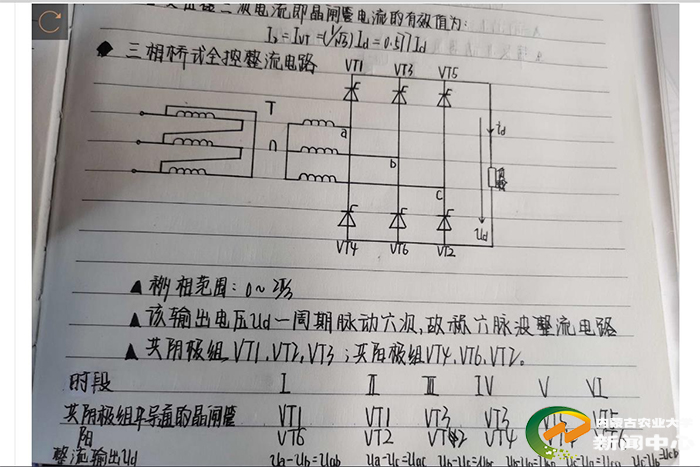 二次电流即晶闸管电流的有效值为:
I₂=IVT=(1/√3)Id=0.577Id
◆ 三相桥式全控整流电路
VT1 VT3 VT5
T
n
a
b
c
id
Ud
VT4 VT6 VT2
▲ 移相范围:0~2π/3
▲ 该输出电压Ud一周期脉动六次,故称六脉波整流电路
▲ 共阴极组VT1,VT2,VT3;共阳极组VT4,VT6,VT2。
时段 I II III IV V VI
共阴极组中导通的晶闸管 VT1 VT1 VT3 VT3 VT5
阳 VT6 VT2 VT2 VT4
整流输出Ud Ua-Ub=Uab Ua-Uc=Uac Ub-Uc=Ubc
内蒙古农业大
新闻中心